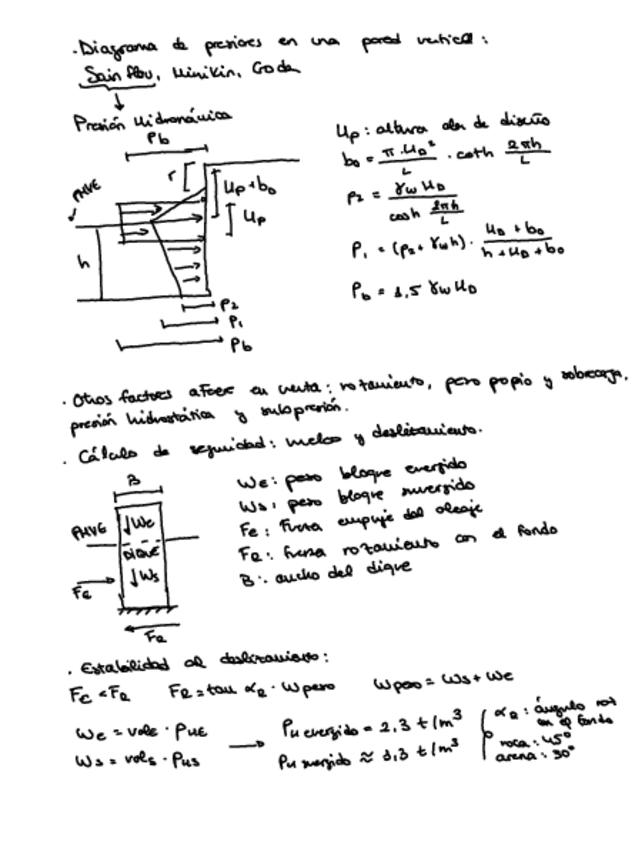 . Diagrama de presiones en una pared vertical :
Sainflou, Minikin, Goda
Presión Hidrodinámica
Pb
r
Hp + b0
Hp
PMVE
h
P2
P1
Pb
Hp : altura ola de diseño
b0 = π · HD² / L · coth 2πh / L
P2 = γw HD / cosh 2πh / L
P1 = (P2 + γw h) · HD + b0 / h + HD + b0
Pb = 1,5 γw HD
. Otros factores a tener en cuenta : rozamiento, peso propio y sobrecarga,
presión hidrostática y subpresión.
. Cálculo de seguridad : vuelco y deslizamiento.
B
We
PMVE
DIQUE
Ws
Fe
FR
We : peso bloque emergido
Ws : peso bloque sumergido
Fe : Fuerza empuje del oleaje
FR : fuerza rozamiento con el fondo
B : ancho del dique
. Estabilidad al deslizamiento :
Fe < FR FR = tan αR · Wpeso Wpeso = Ws + We
We = vole · PHE
Ws = vols · PHS
PH emergido = 2,3 t/m³
PH sumergido ≈ 1,3 t/m³
αR : ángulo roz
en el fondo
roca : 45°
arena : 30°